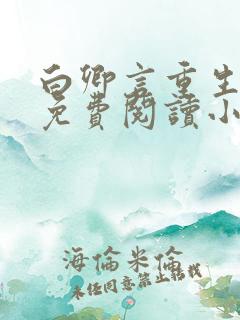 白卿言重生
免費閱讀小
海倫米倫
未經同意禁止轉載